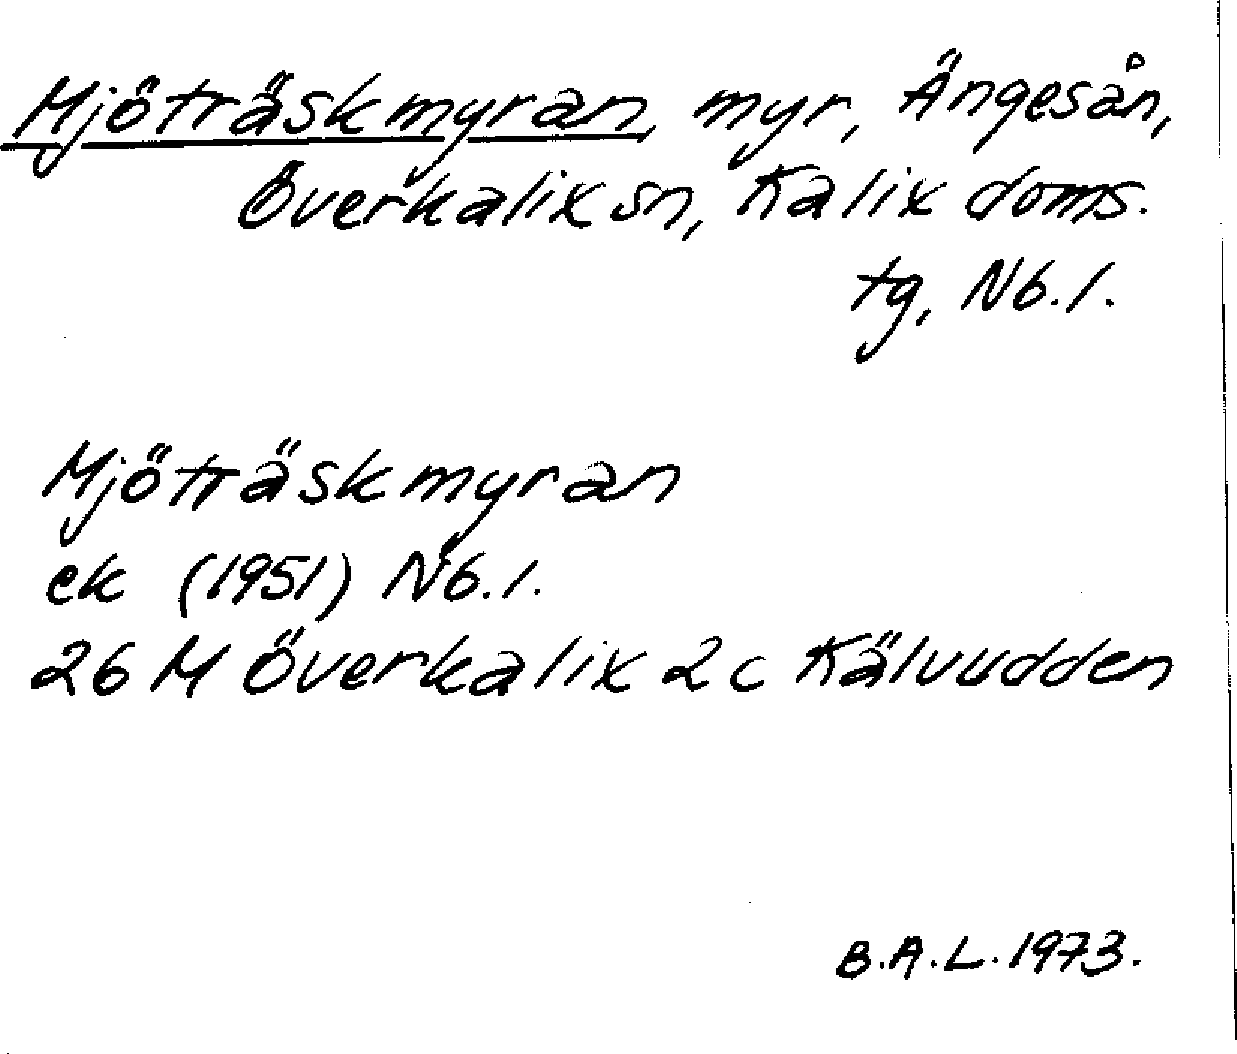 Mjöträskmyran, myr, Ängesån,
Överkalix sn, Kalix doms.
tg, Nb.l.
Mjöträskmyran
ek (1951) Nb.l.
26 M Överkalix 2c Kälvudden
B.A.L. 1973.